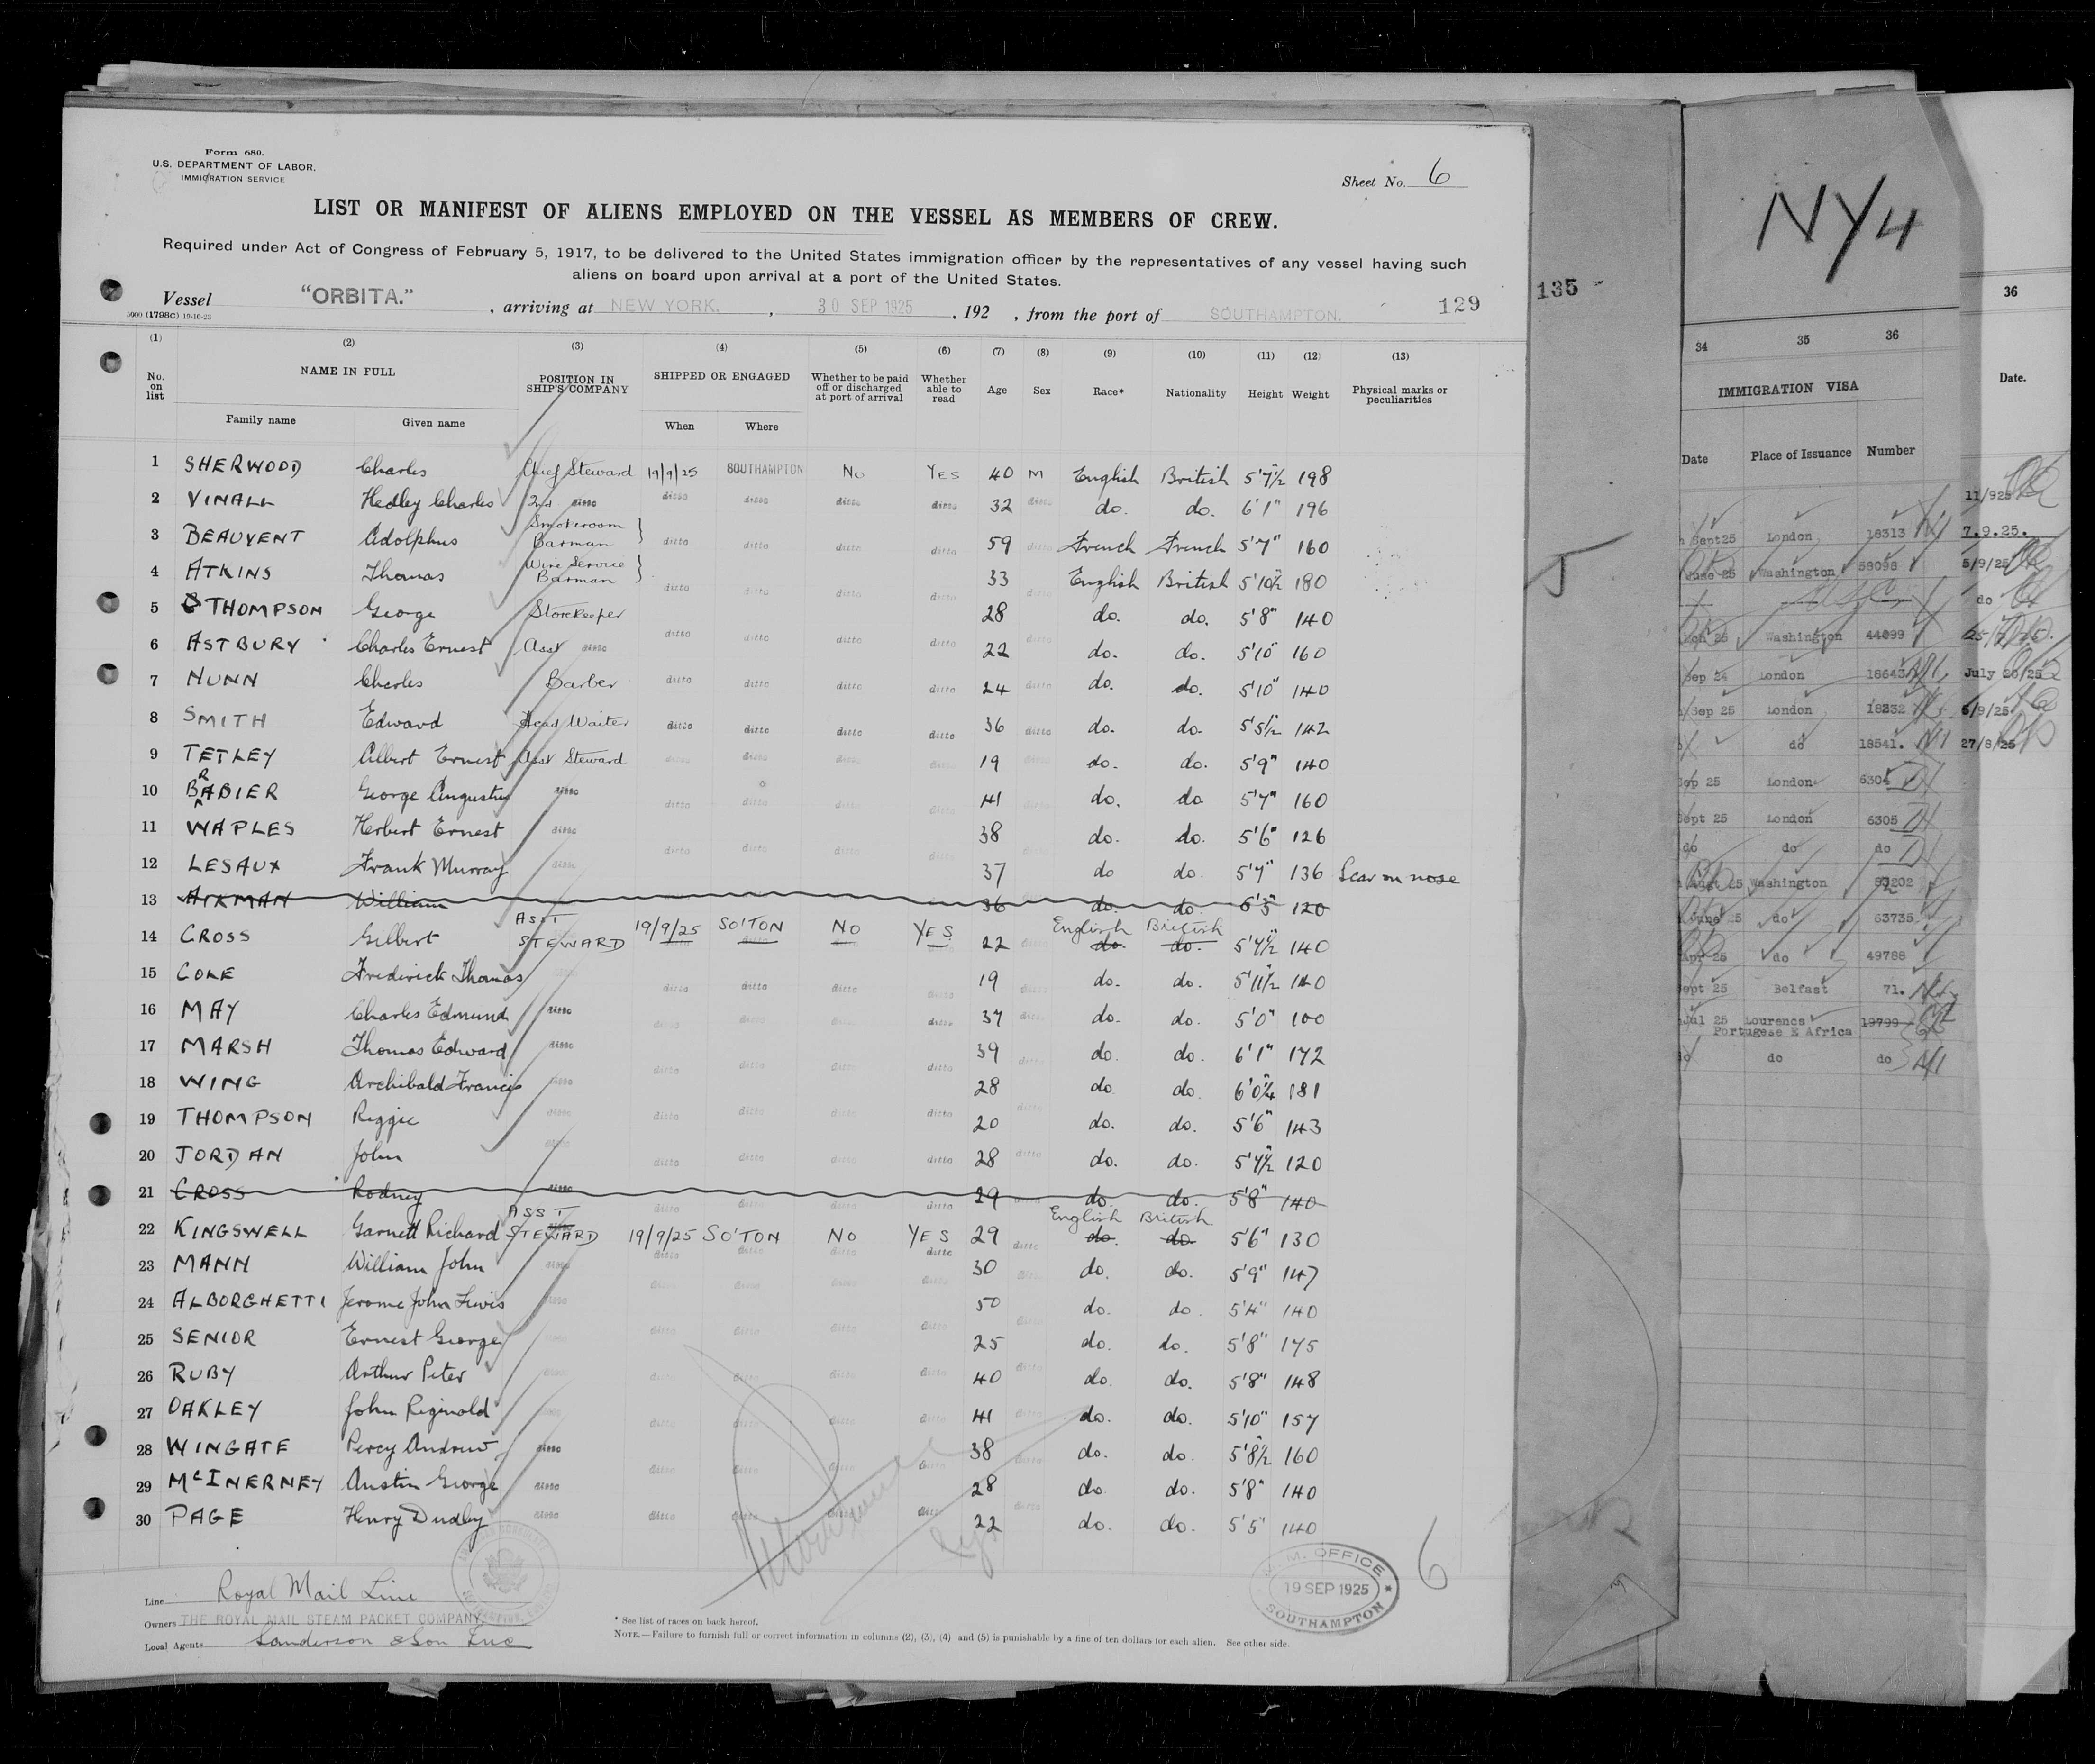 Form 680.
U.S. DEPARTMENT OF LABOR,
IMMIGRATION SERVICE
Sheet No. 6
LIST OR MANIFEST OF ALIENS EMPLOYED ON THE VESSEL AS MEMBERS OF CREW.
Required under Act of Congress of February 5, 1917, to be delivered to the United States immigration officer by the representatives of any vessel having such
aliens on board upon arrival at a port of the United States.
Vessel "ORBITA." , arriving at NEW YORK. , 30 SEP 1925 , 192 , from the port of SOUTHAMPTON. 129
5000 (1798C) 19-10-23
(1) (2) (3) (4) (5) (6) (7) (8) (9) (10) (11) (12) (13)
No. on list NAME IN FULL POSITION IN SHIP'S COMPANY SHIPPED OR ENGAGED Whether to be paid off or discharged at port of arrival Whether able to read Age Sex Race* Nationality Height Weight Physical marks or peculiarities
Family name Given name When Where
1 SHERWOOD Charles Chief Steward 19/9/25 SOUTHAMPTON No YES 40 M English British 5'7½" 198
2 VINALL Hedley Charles 2nd ditto ditto ditto ditto ditto 32 ditto do. do. 6'1" 196
3 BEAUVENT Adolphus Smokeroom Barman ditto ditto ditto ditto 59 ditto French French 5'7" 160
4 ATKINS Thomas Wine Service Barman ditto ditto ditto ditto 33 ditto English British 5'10½" 180
5 THOMPSON George Storekeeper 28 do. do. 5'8" 140
6 ASTBURY Charles Ernest Asst ditto ditto ditto ditto ditto 22 ditto do. do. 5'10" 160
7 NUNN Charles Barber ditto ditto ditto ditto 24 ditto do. do. 5'10" 140
8 SMITH Edward Head Waiter ditto ditto ditto ditto 36 ditto do. do. 5'5½" 142
9 TETLEY Albert Ernest Asst Steward ditto ditto ditto ditto 19 do. do. 5'9" 140
10 BARBIER George Augustus ditto ditto ditto ditto ditto 41 do. do 5'7" 160
11 WAPLES Herbert Ernest ditto 38 do. do. 5'6" 126
12 LESAUX Frank Murray ditto ditto ditto ditto ditto 37 do do. 5'7" 136 Scar on nose
13 William 36 do. do. 6'3" 120
14 CROSS Gilbert ASST STEWARD 19/9/25 SO'TON No YES 22 English British 5'7½" 140
15 COLE Frederick Thomas ditto ditto ditto ditto 19 do. do. 5'11½" 140
16 MAY Charles Edmund ditto ditto ditto ditto ditto 37 ditto do. do. 5'0" 100
17 MARSH Thomas Edward ditto ditto ditto ditto ditto 39 ditto do. do. 6'1" 172
18 WING Archibald Francis ditto 28 do. do. 6'0¼" 181
19 THOMPSON Reggie ditto ditto ditto ditto ditto 20 ditto do. do. 5'6" 143
20 JORDAN John ditto ditto ditto ditto ditto 28 ditto do. do. 5'7½" 120
21 CROSS Rodney ditto ditto ditto ditto ditto 29 do. do. 5'8" 140
22 KINGSWELL Garnett Richard ASST STEWARD 19/9/25 SO'TON No YES 29 ditto English British 5'6" 130
23 MANN William John ditto ditto ditto ditto ditto 30 ditto do. do. 5'9" 147
24 ALBORGHETTI Jerome John Lewis ditto 50 ditto do. do. 5'4" 140
25 SENIOR Ernest George ditto ditto ditto ditto 25 ditto do. do. 5'8" 175
26 RUBY Arthur Peter ditto ditto ditto ditto ditto 40 ditto do. do. 5'8" 148
27 OAKLEY John Reginald ditto ditto ditto ditto ditto 41 ditto do. do. 5'10" 157
28 WINGATE Percy Andrew ditto ditto ditto ditto ditto 38 ditto do. do. 5'8½" 160
29 McINERNEY Austin George ditto 28 do. do. 5'8" 140
30 PAGE Henry Dudley ditto ditto ditto ditto ditto 22 ditto do. do. 5'5" 140
Line Royal Mail Line
Owners THE ROYAL MAIL STEAM PACKET COMPANY.
Local Agents Sanderson & Son Inc
* See list of races on back hereof.
NOTE.—Failure to furnish full or correct information in columns (2), (3), (4) and (5) is punishable by a fine of ten dollars for each alien. See other side.
M. OFFICE
19 SEP 1925
SOUTHAMPTON
6
135
NY4
34 35 36
IMMIGRATION VISA
Date Place of Issuance Number
Sept 25 London 18313
June 25 Washington 58098
25 Washington 44099
Sep 24 London 18643
Sep 25 London 18232
do 18541.
Sep 25 London 6304
Sept 25 London 6305
do do do
25 Washington
June 25 do 63735
Apr 25 do 49788
Sept 25 Belfast 71.
Jul 25 Lourencs Portugese E Africa 19799
do do
36
Date.
11/925
7.9.25.
5/9/25
do
July 20/25
27/8/25